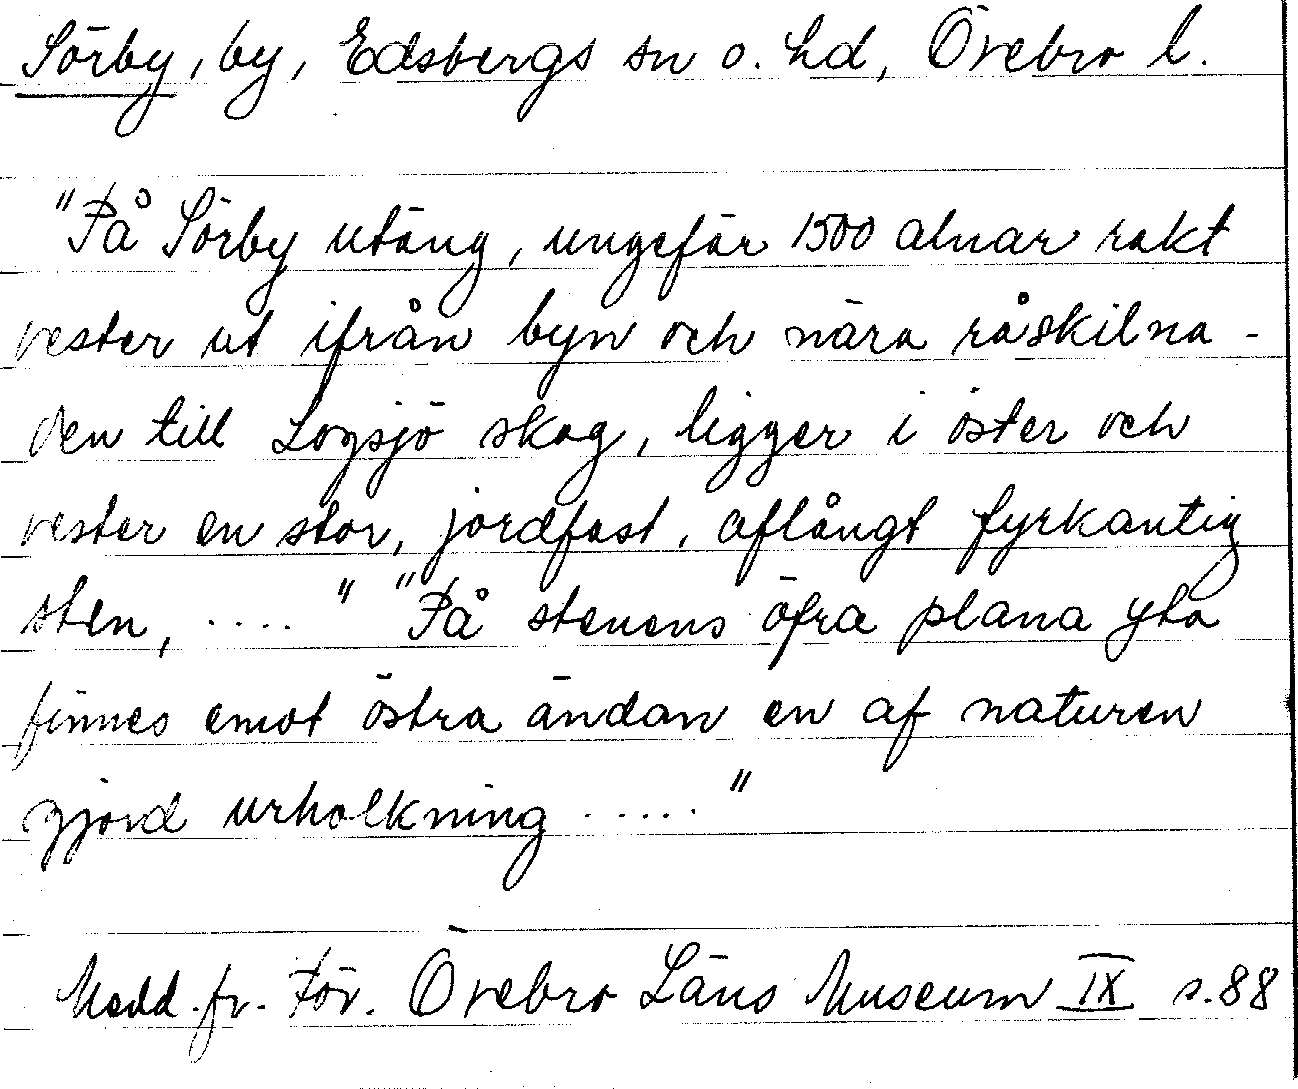 Sörby, by, Edsbergs sn o. hd, Örebro l.
"På Sörby utäng, ungefär 1500 alnar rakt
vester ut ifrån byn och nära råskilna-
den till Logsjö skog, ligger i öster och
vester en stor, jordfast, aflångt fyrkantig
sten, ...." "På stenens öfra plana yta
finnes emot östra ändan en af naturen
gjord urholkning ....."
Medd. fr. För. Örebro Läns Museum IX s. 88